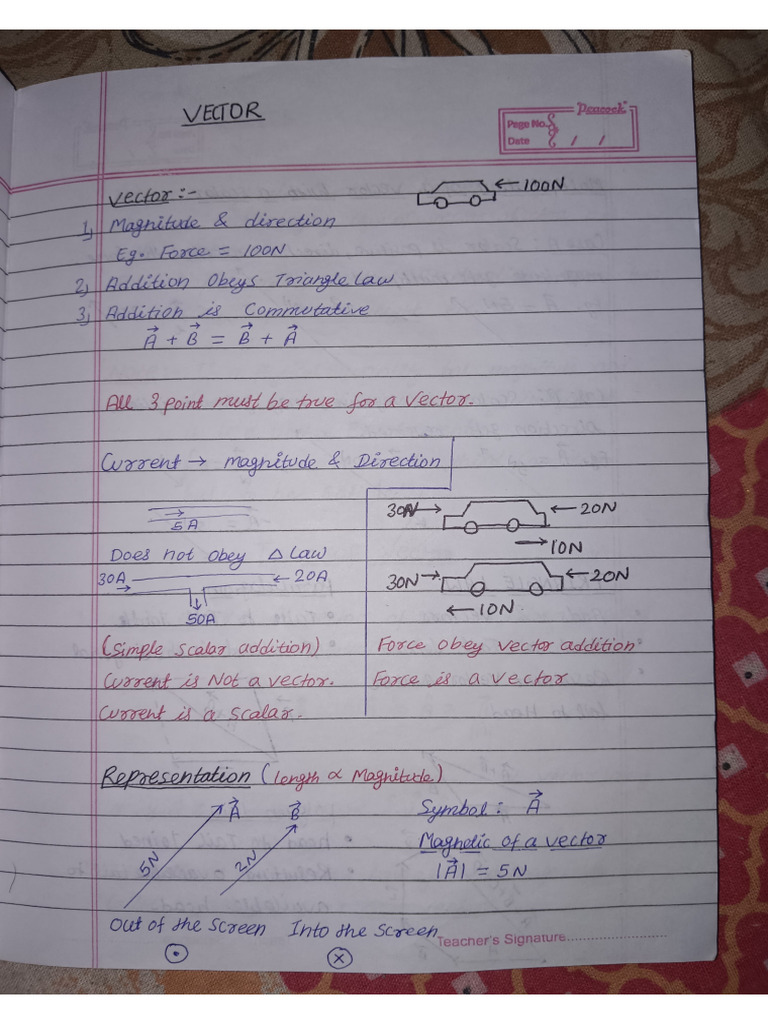 VECTOR
Peacock
Page No.
Date / /
Vector :-
← 100N
1) Magnitude & direction
Eg. Force = 100N
2) Addition Obeys Triangle Law
3) Addition is Commutative
A⃗ + B⃗ = B⃗ + A⃗
All 3 point must be true for a Vector.
Current → Magnitude & Direction
→
5A
30N → ← 20N
→ 10N
Does not obey Δ Law
30A → ← 20A
↓
50A
30N → ← 20N
← 10N
(Simple Scalar addition)
Force obey vector addition
Current is Not a vector.
Force is a vector
Current is a Scalar.
Representation (length ∝ Magnitude)
A⃗ B⃗
5N 2N
Symbol : A⃗
Magnetic of a vector
|A⃗| = 5N
Out of the Screen Into the Screen
Teacher's Signature